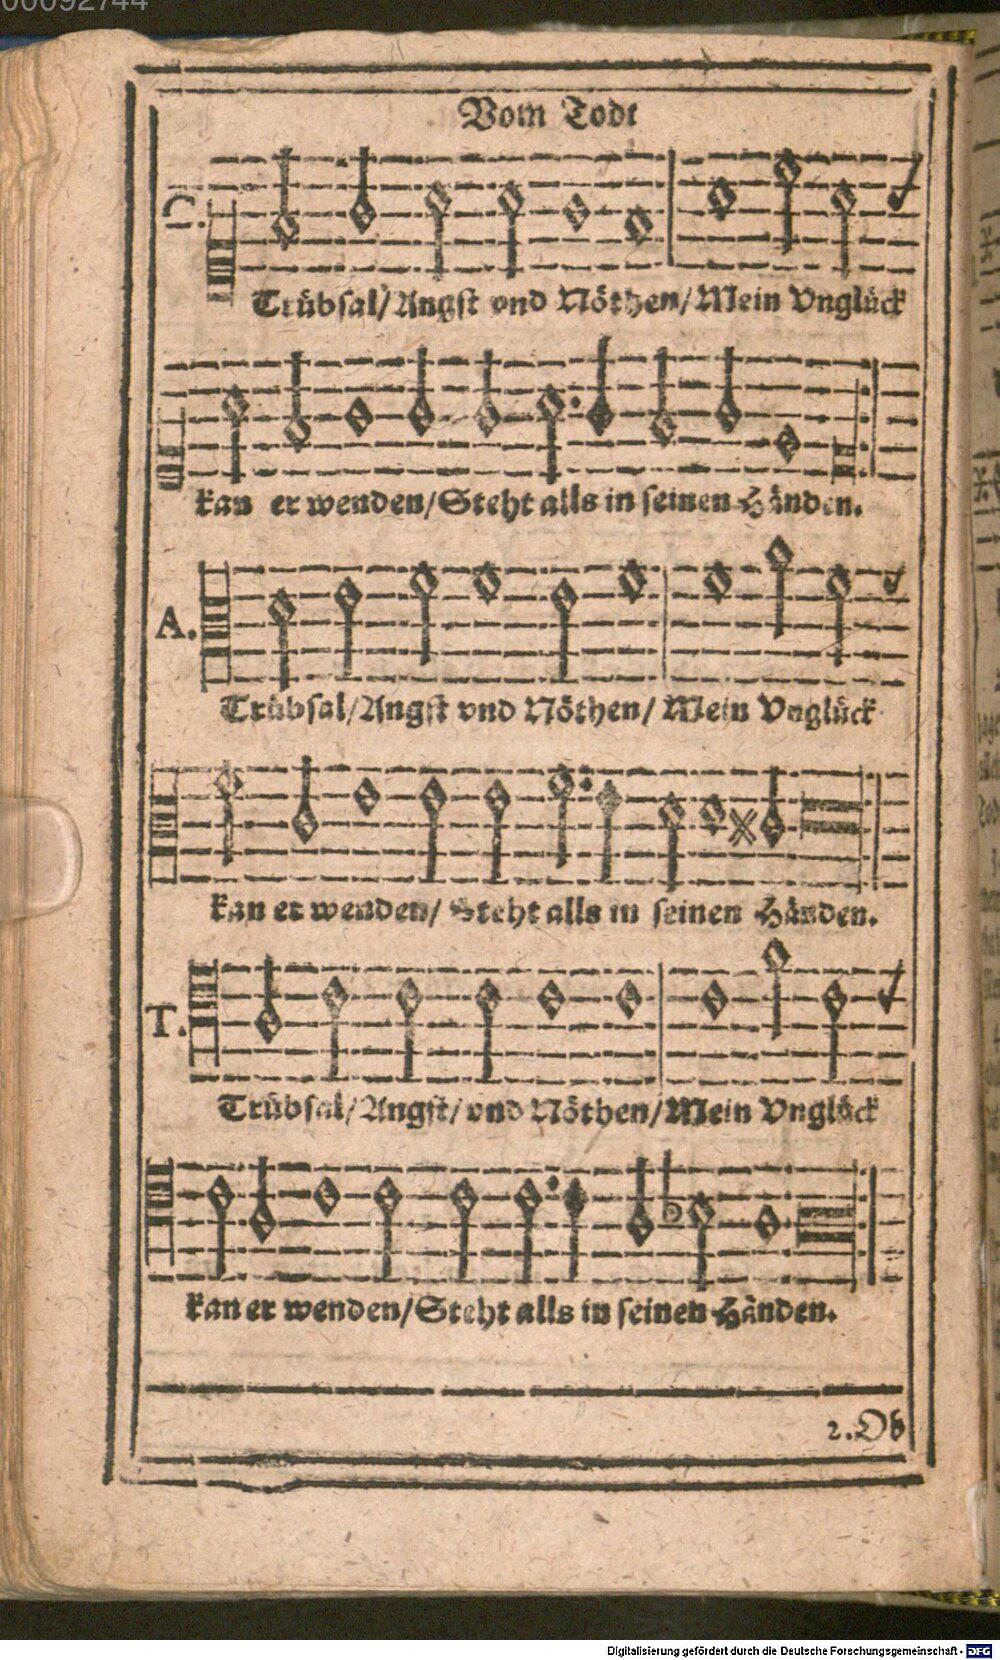 00092744
Vom Todt
C.
Trübsal/ Angst vnd Nöthen/ Mein Vnglück
kan er wenden/ Steht alls in seinen Händen.
A.
Trübsal/ Angst vnd Nöthen/ Mein Vnglück
kan er wenden/ Steht alls in seinen Händen.
T.
Trübsal/ Angst/ vnd Nöthen/ Mein Vnglück
kan er wenden/ Steht alls in seinen Händen.
2. Ob
Digitalisierung gefördert durch die Deutsche Forschungsgemeinschaft - DFG